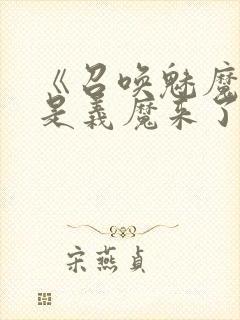 《召唤魅魔
是義魔来了
宋燕贞